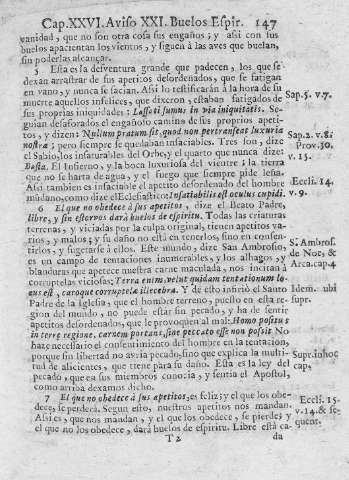 Cap.XXVI. Aviso XXI. Buelos Espir. 147
vanidad, que no son otra cosa sus engaños; y asi con sus
buelos apacientan los vientos, y siguen à las aves que buelan,
sin poderlas alcançar.
5 Esta es la desventura grande que padecen, los que se
dexan arrastrar de sus apetitos desordenados, que se fatigan
en vano, y nunca se sacian. Asi lo testificaràn à la hora de su
muerte aquellos infelices, que dixeron, estaban fatigados de
sus proprias iniquidades: Lassati sumus in via iniquitatis. Se-
Sap.5. v.7.
guian desaforados el engañoso camino de sus proprios apeti-
tos, y dizen: Nullum pratum sit, quod non pertranseat luxuria
nostra; pero siempre se quedaban insaciables. Tres son, dize
Sap.2. v.8.
el Sabio, los insaturables del Orbe, y el quarto que nunca dize:
Prov.30.
Basta. El Infierno, y la boca luxuriosa del vientre; la tierra
v. 15.
que no se harta de agua, y el fuego que siempre pide leña.
Asi tambien es insaciable el apetito desordenado del hombre
Eccli. 14.
mundano, como dize el Eclesiastico: Insatiabilis est oculus cupidi.
v. 9.
6 El que no obedece à sus apetitos, dize el Beato Padre,
libre, y sin estorvos darà buelos de espiritu. Todas las criaturas
terrenas, y viciadas por la culpa original, tienen apetitos va-
rios, y malos; y su daño no està en tenerlos, sino en consen-
tirlos, y sugetarse à ellos. Este mundo, dize San Ambrosio,
S. Ambros.
es un campo de tentaciones inumerables, y los alhagos, y
de Noe, &
blanduras que apetece nuestra carne maculada, nos incitan à
Arca.cap.4
corruptelas viciosas; Terra enim velut quidam tentationum lo-
cus est, caroque corruptelæ illecebra. Y de esto infiriò el Santo
Idem ubi
Padre de la Iglesia, que el hombre terreno, puesto en esta re-
supr.
gion del mundo, no puede estar sin pecado; y ha de sentir
apetitos desordenados, que le provoquen al mal: Homo positus
in terræ regione, carnem portans, sine peccato esse non possit. No
haze necesario el consentimiento del hombre en la tentacion,
porque sin libertad no avria pecado, sino que explica la multi-
Supr. in hoc
tud de alicientes, que tiene para su daño. Esta es la ley del
cap,
pecado, que en sus miembros conocia, y sentia el Apostol,
como arriba dexamos dicho.
7 El que no obedece à sus apetitos, es feliz; y el que los obe-
Eccli. 15.
dece, se perderà. Segun esto, nuestros apetitos nos mandan.
v. 14. & se-
Asi es, que nos mandan, y el que los obedece, se pierde; y
quent.
el que no los obedece, darà buelos de espiritu. Libre està ca-
T 2 da